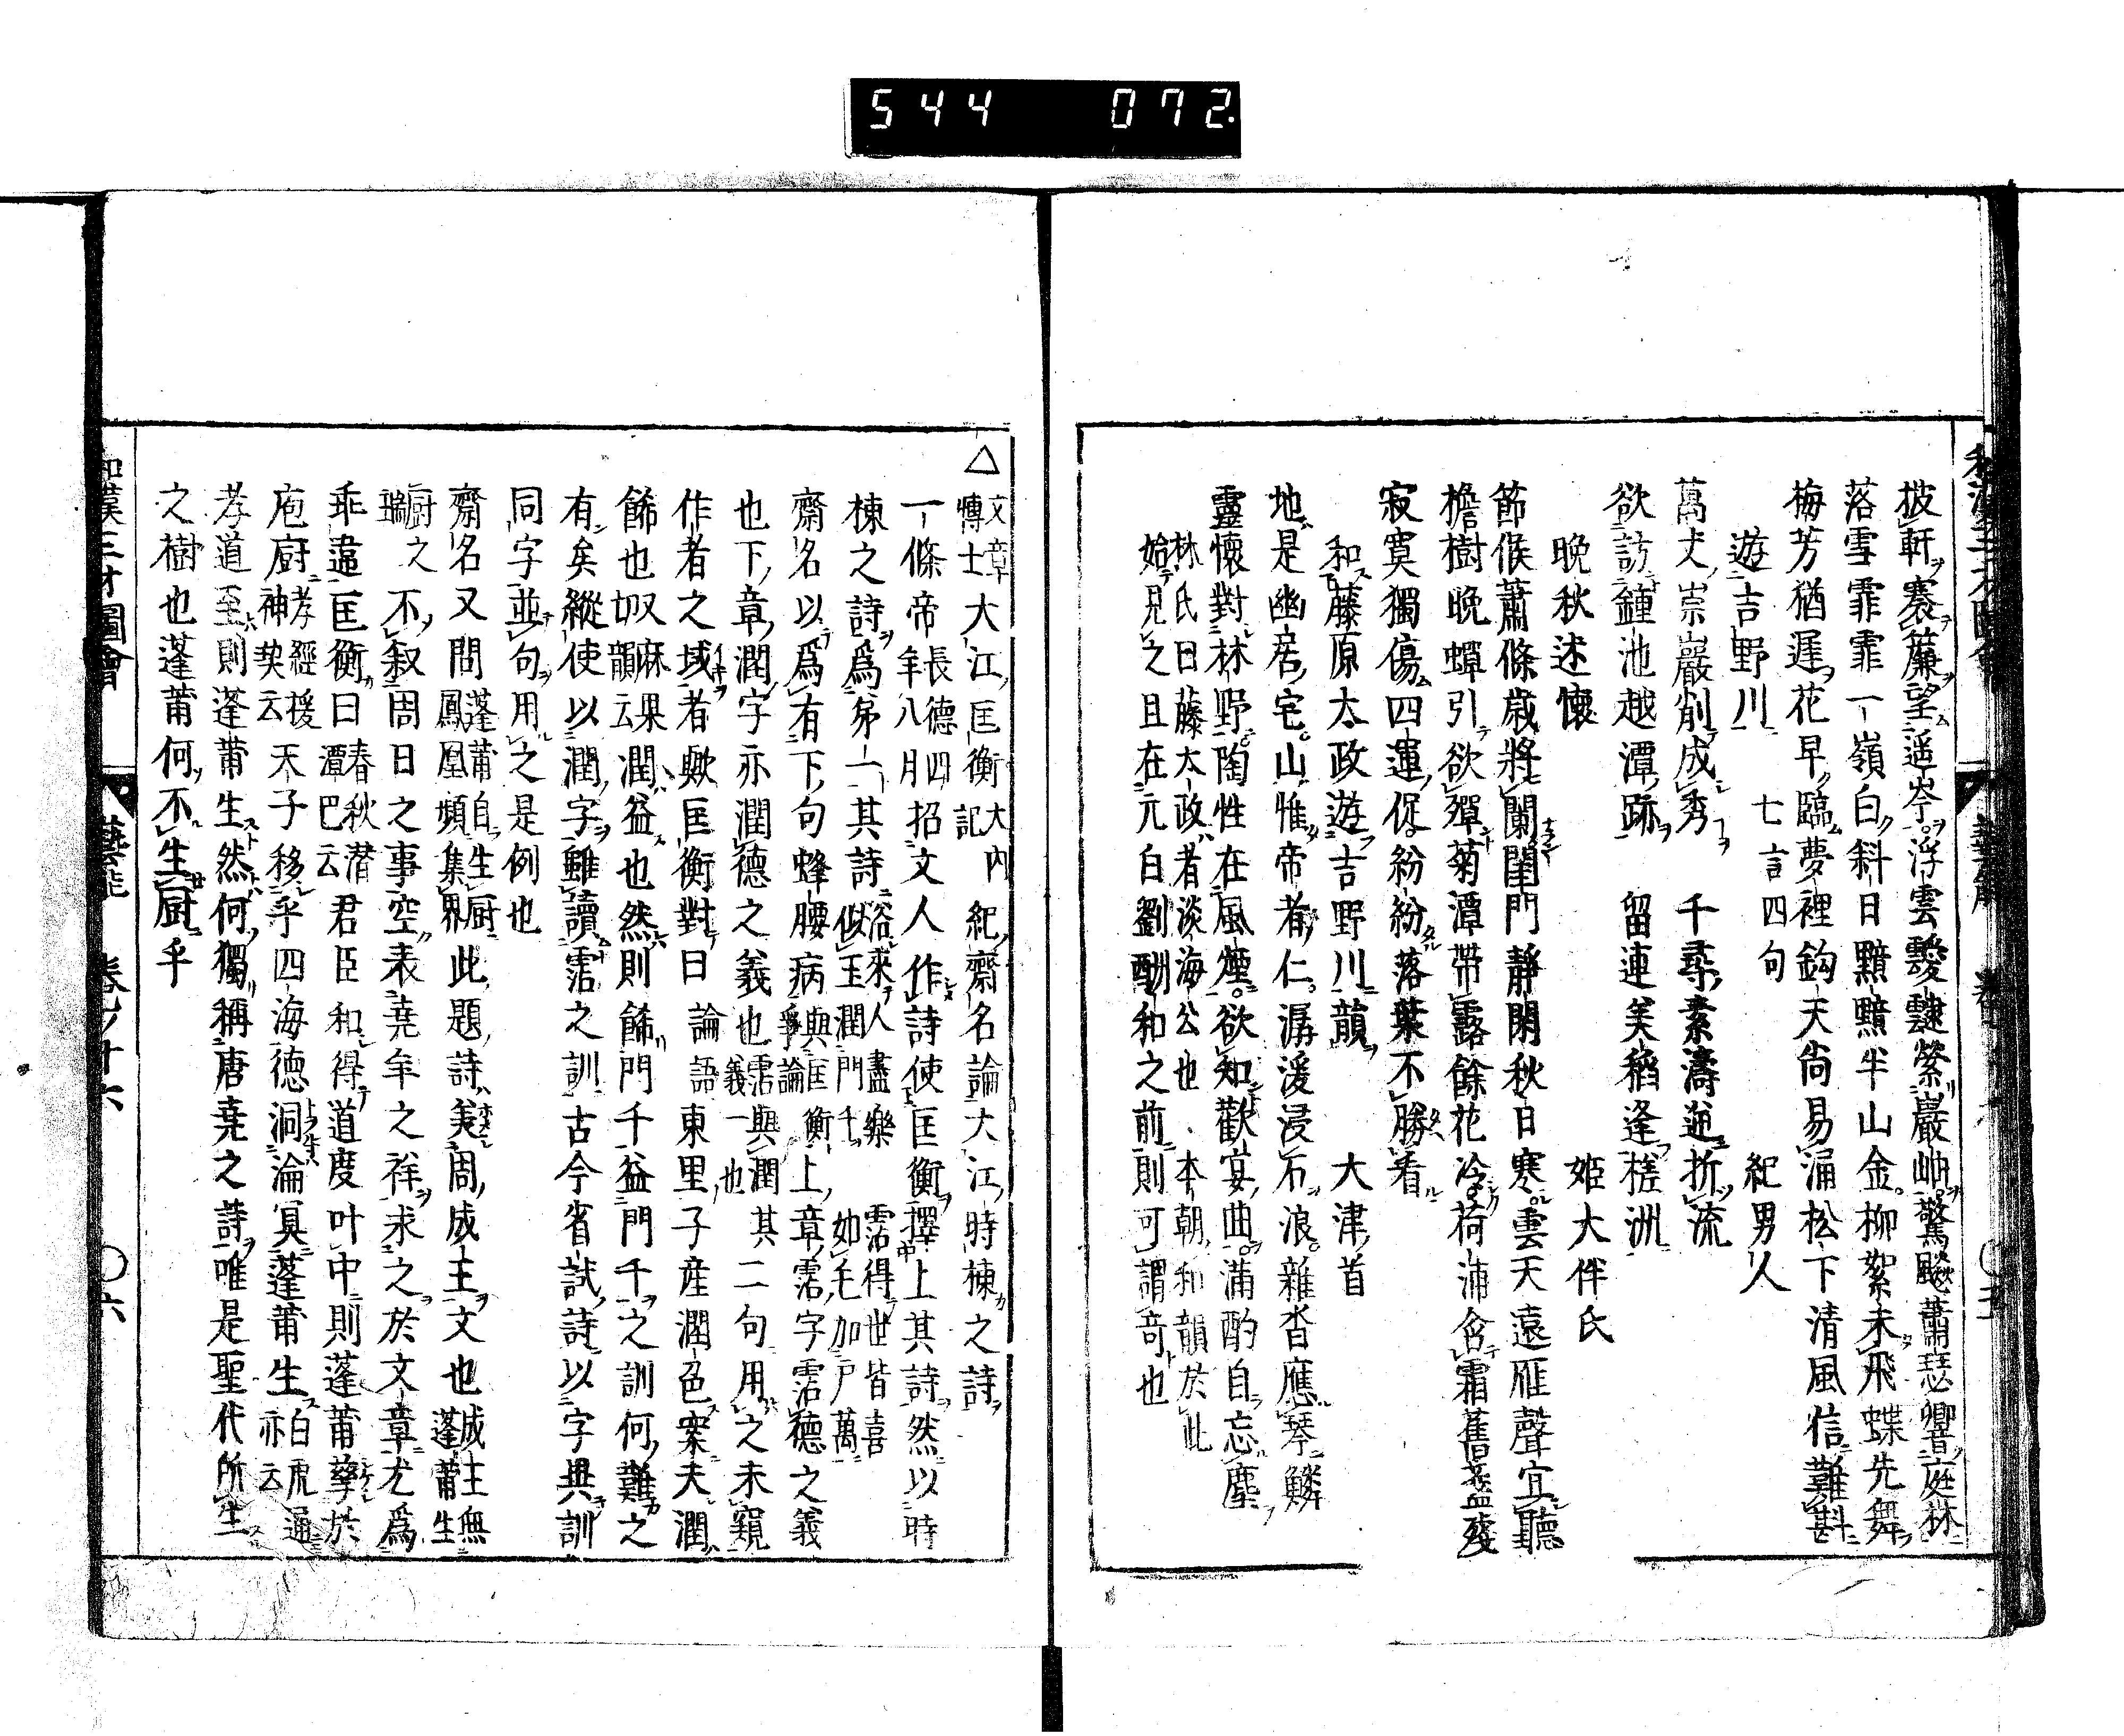 544 072
披軒褰簾望遥岑浮雲靉靆縈巖岫驚飈蕭瑟響庭林
落雪霏霏一嶺白斜日黯黯半山金柳絮未飛蝶先舞
梅芳猶遲花早臨夢裡鈞天尚易涌松下清風信難斟
遊吉野川 七言四句 紀男人
萬丈崇巖削成秀 千尋素濤逆折流
欲訪鍾池越潭跡 留連美稻逢槎洲
晩秋述懷 姫大伴氏
節候蕭條歳將闌閨門靜閑秋日寒雲天遠雁聲宜聽
檐樹晩蟬引欲殫菊潭帶露餘花冷荷浦含霜舊盞殘
寂寞獨傷四運促紛紛落葉不勝看
和藤原太政遊吉野川韻 大津首
地是幽居宅山惟帝者仁潺湲浸石浪雜沓應琴鱗
靈懷對林野陶性在風煙欲知歡宴曲滿酌自忘塵
林氏曰藤太政者淡海公也本朝和韻於此
始見之且在元白劉酬和之前則可謂奇也
△
文章
博士大江匡衡大内記紀齋名論大江時棟之詩
一條帝長德四年八月招文人作詩使匡衡擇上其詩然以時
棟之詩爲第一其詩浴來人盡樂霑得世皆喜
似玉潤門千如毛加戸萬
齋名以爲有下句蜂腰病與匡衡
爭論上章霑字霑德之義
也下章潤字亦潤德之義也霑與潤其
義一也二句用之未窺
作者之域者歟匡衡對曰論語東里子産潤色案夫潤
餝也叉麻果切韻云潤益也然則餝門千益門千之訓何難之
有矣縱使以潤字雖讀霑之訓古今省試詩以字與訓
同字並句用之是例也
齋名又問蓬莆自生厨
鳳凰頻集界此題詩美周成王文也成王無
蓬莆生
厨之
瑞不叙周日之事空表堯年之祥求之於文章尤爲
乖違匡衡曰春秋潜
潭巴云君臣和得道度叶中則蓬莆孳於
庖厨孝經援
神契云天子移乎四海德洞淪冥蓬莆生白虎通
亦云
孝道至則蓬莆生然何獨稱唐堯之詩唯是聖代所生
之樹也蓬莆何不生厨乎
和漢三才圖會 藝能 巻ノ十六 〇六